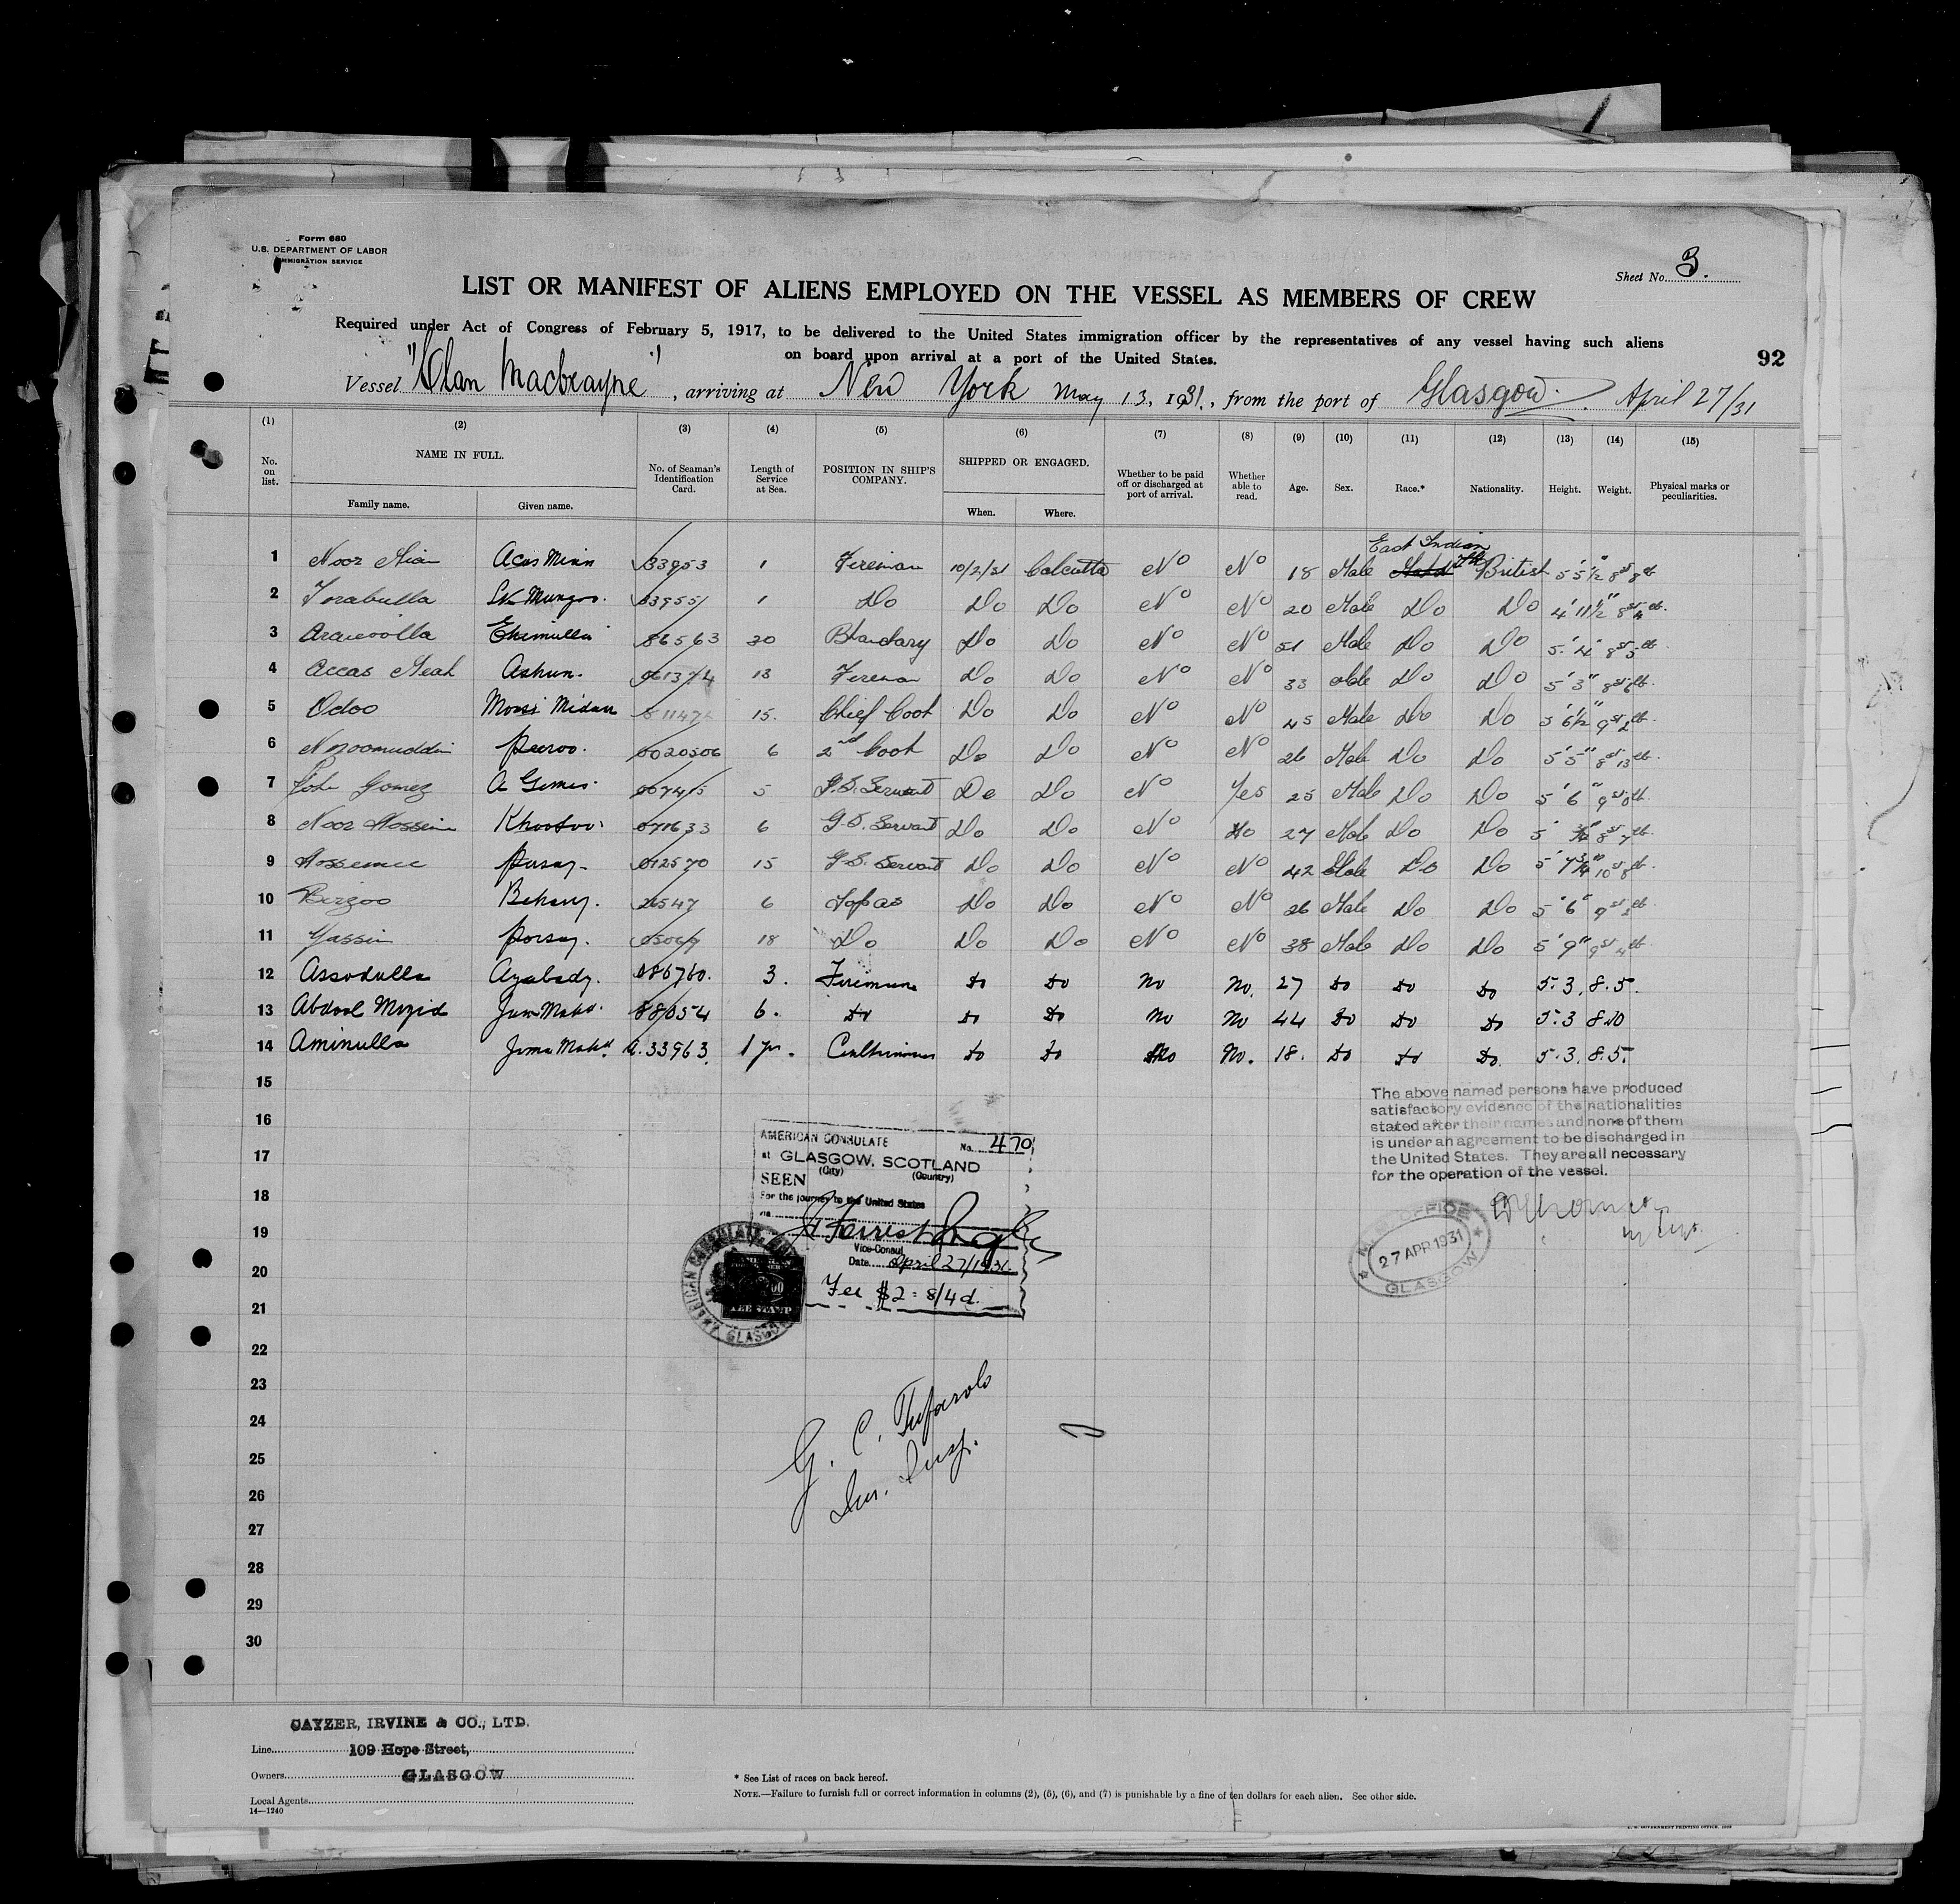 Form 680
U.S. DEPARTMENT OF LABOR
IMMIGRATION SERVICE
Sheet No. 3.
LIST OR MANIFEST OF ALIENS EMPLOYED ON THE VESSEL AS MEMBERS OF CREW
Required under Act of Congress of February 5, 1917, to be delivered to the United States immigration officer by the representatives of any vessel having such aliens
on board upon arrival at a port of the United States.
92
Vessel "Clan Macbrayne", arriving at New York May 13, 1931, from the port of Glasgow. April 27/31
(1) (2) (3) (4) (5) (6) (7) (8) (9) (10) (11) (12) (13) (14) (15)
No. on list. NAME IN FULL. Family name. Given name. No. of Seaman's Identification Card. Length of Service at Sea. POSITION IN SHIP'S COMPANY. SHIPPED OR ENGAGED. When. Where. Whether to be paid off or discharged at port of arrival. Whether able to read. Age. Sex. Race.* Nationality. Height. Weight. Physical marks or peculiarities.
East Indian
1 Noor Mian Acas Mian 33953 1 Fireman 10/2/31 Calcutta No No 18 Male British 5'5½"
2 Torabulla Sk Mungos. 33955 1 Do Do Do No No 20 Male Do Do 4'11½"
3 86563 30 Bhandary Do Do No No 51 Male Do Do 5'4"
4 Accas Meah Ashun. 061374 13 Fireman Do Do No No 33 Male Do Do 5'3"
5 Odoo 15. Chief Cook Do Do No No 45 Male Do Do 5'6½"
6 Peeroo. 0020506 6 2nd Cook Do Do No No 26 Male Do Do 5'5"
7 John Gomez A Gomes. 5 G.S. Servant Do Do No Yes 25 Male Do Do 5'6"
8 Noor Hossein 6 G.S. Servant Do Do No No 27 Male Do Do 5'
9 012570 15 G.S. Servant Do Do No No 42 Male Do Do 5'
10 Birgoo Behary. 26547 6 Topas Do Do No No 26 Male Do Do 5'6"
11 Yassin 18 Do Do Do No No 38 Male Do Do 5'9"
12 Assodulla Ayabady. 086760. 3. Fireman Do Do No No. 27 Do Do Do 5.3. 8.5.
13 Abdool Mozid Jan Mohd. 88054 6. Do Do Do No No 44 Do Do Do 5.3 8.10
14 Aminulla Joma Mohd. A.33963. 1 yr. Do Do No No. 18. Do Do Do. 5.3. 8.5.
15
16
17
18
19
20
21
22
23
24
25
26
27
28
29
30
The above named persons have produced
satisfactory evidence of the nationalities
stated after their names and none of them
is under an agreement to be discharged in
the United States. They are all necessary
for the operation of the vessel.
27 APR 1931
GLASGOW
AMERICAN CONSULATE No. 470
at GLASGOW, SCOTLAND
(City) (Country)
SEEN
For the journey to the United States
via
Vice-Consul
Date April 27/1931.
Fee $2 = 8/4d.
FEE STAMP
G. C. Tufarolo
Im. Insp.
CAYZER, IRVINE & CO., LTD.
Line 109 Hope Street,
Owners GLASGOW
Local Agents
14—1240
* See List of races on back hereof.
NOTE.—Failure to furnish full or correct information in columns (2), (5), (6), and (7) is punishable by a fine of ten dollars for each alien. See other side.